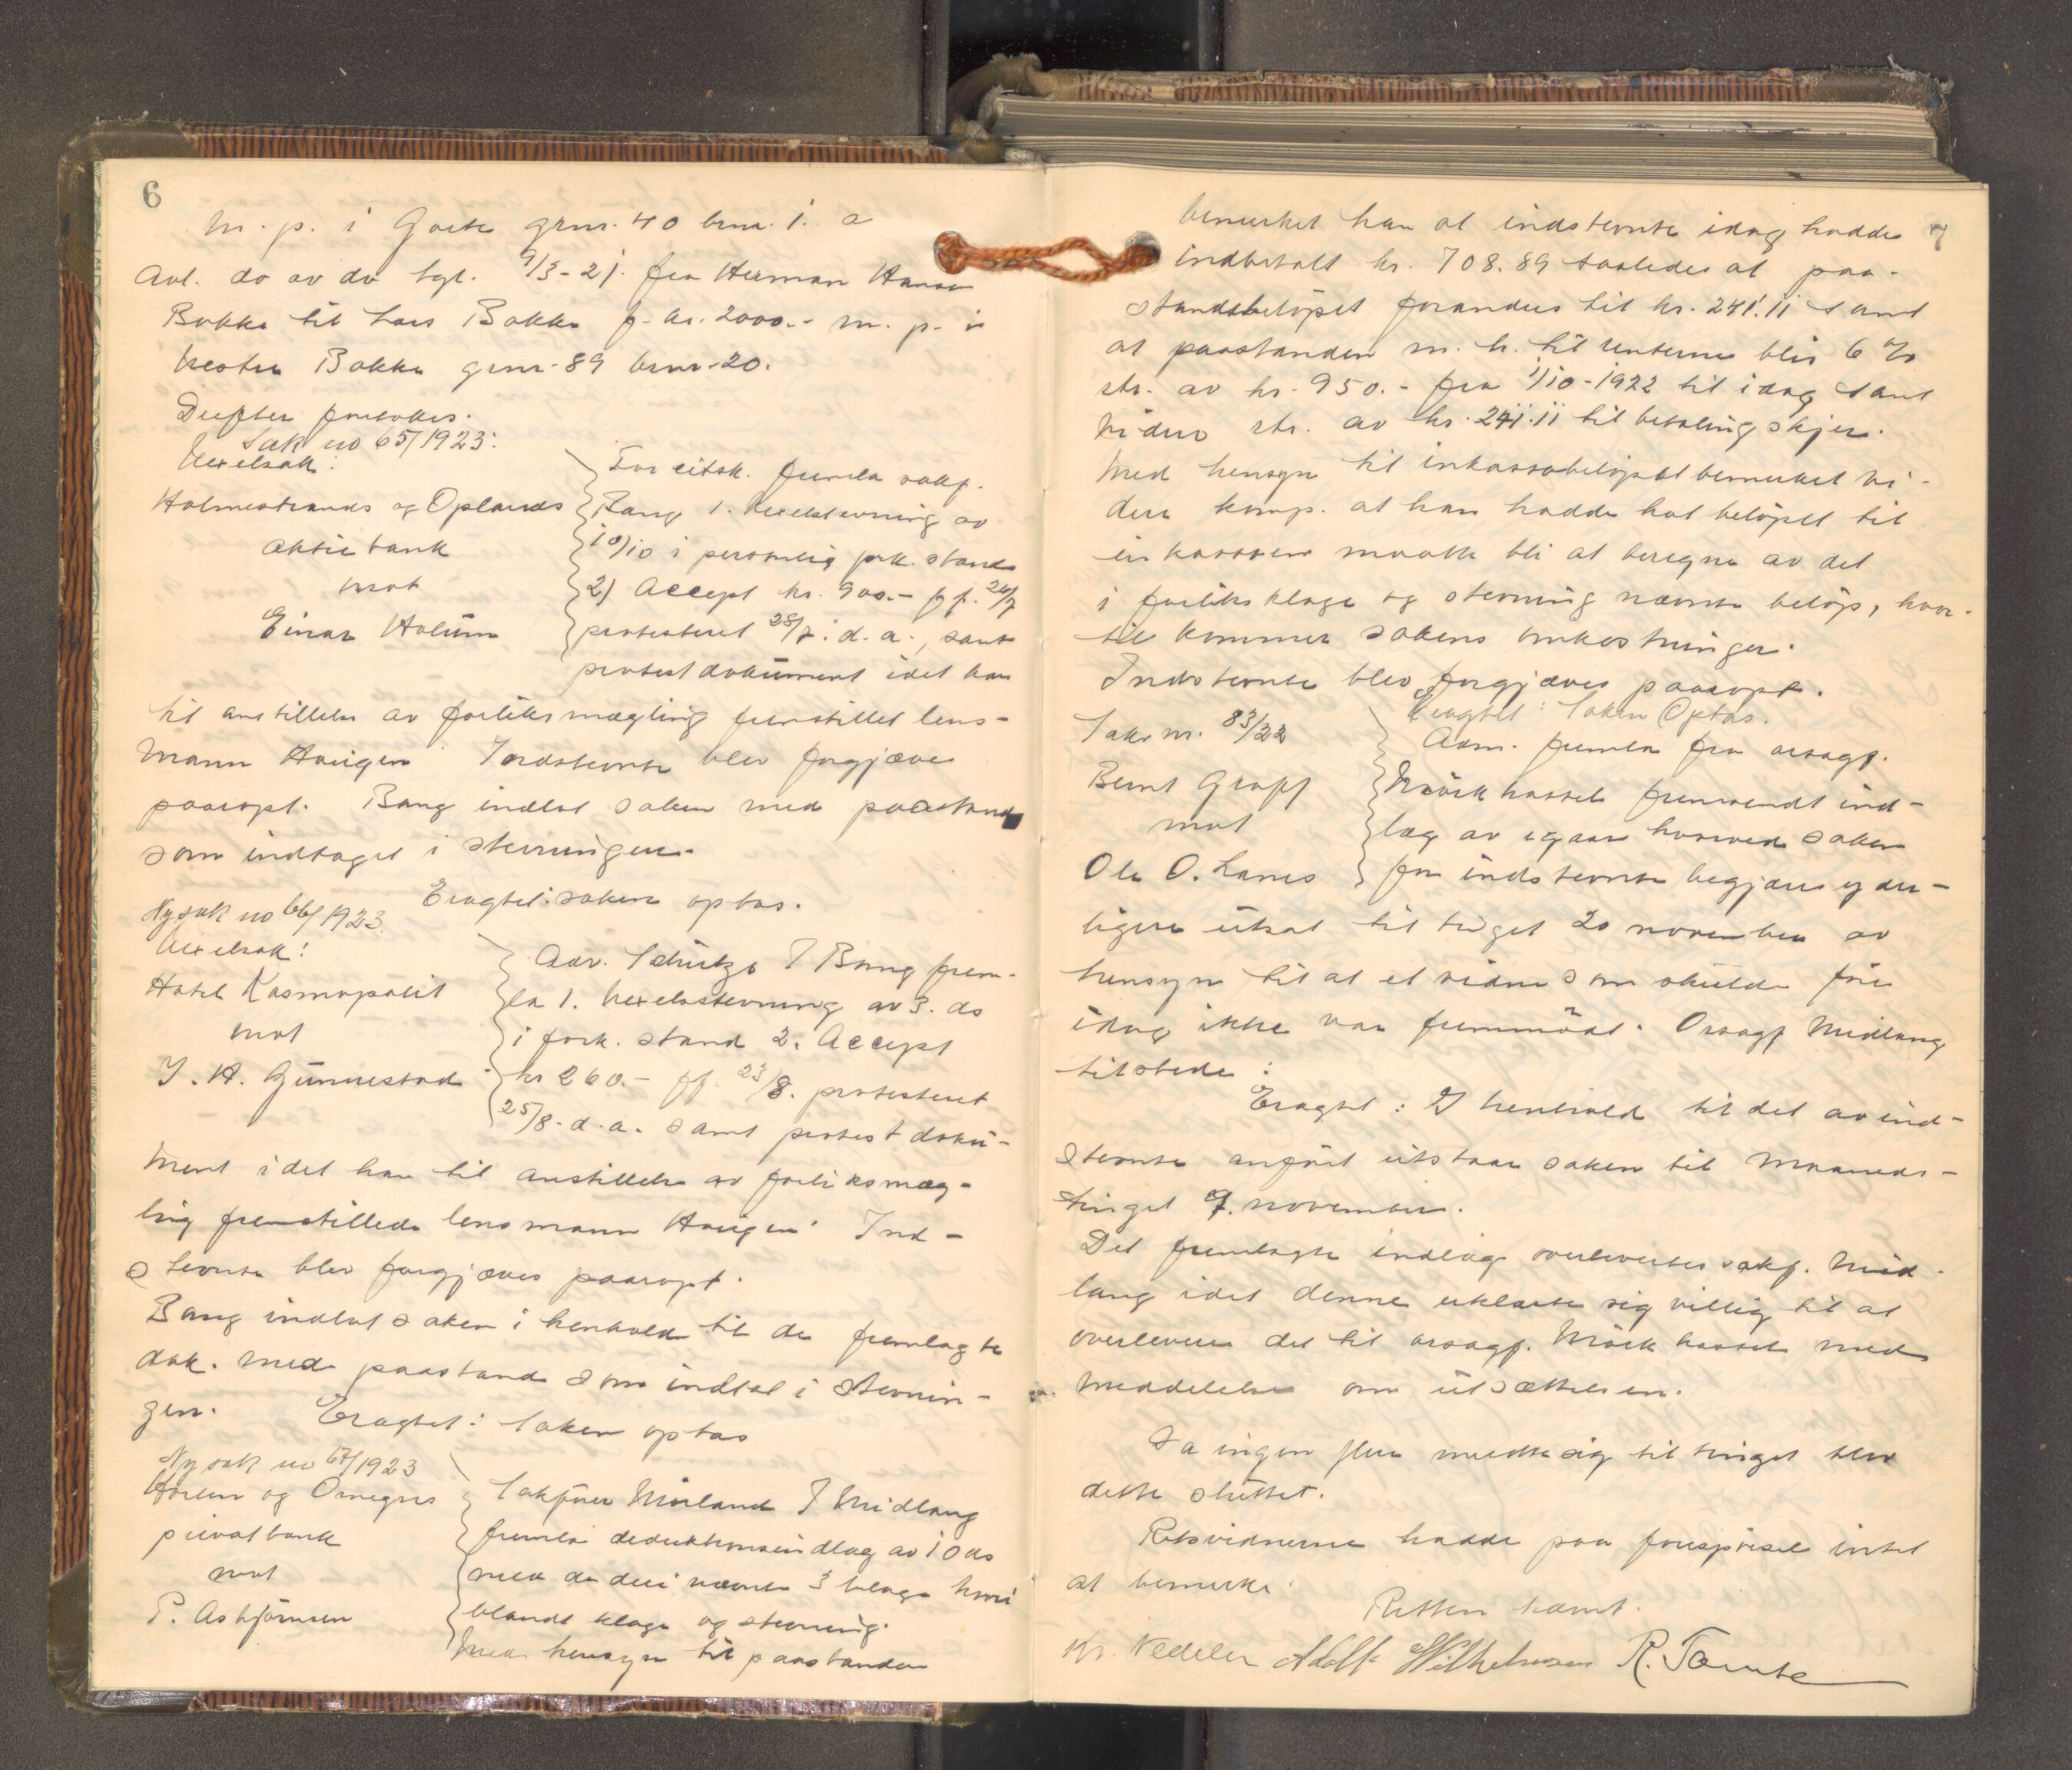 6
m. p. i Garte grnr. 40 brnr. 1. a
Avl. do av do tgl. 9/3-21. fra Herman Hansen
Bakke til Lars Bakke f. kr. 2000.- m. p. i
Vestre Bakke grnr. 89 brnr. 20.
Derefter foretokes.
Sak no 65/1923:
Vexelsak:
Holmestrands og Oplands
aktiebank
mot
Einar Holum
For citsk. fremla sakf.
Bang 1. Vexelstevning av
10/10 i personlig fork. stand
2) Accept kr. 900.- p f. 26/7
protesteret 28/7. d. a., samt
protestdokument idet han
til anstillelse av forliksmægling fremstillet lens-
mann Haugen. Indstevnte blev forgjæves
paaropt. Bang indlot saken med paastand
som indtaget i stevningen.
Eragtet: saken optas.
Ny sak no 66/1923.
Vexelsak:
Hotel Kosmopolit
mot
J. H. Gunnestad
Adv. Schutze F Bang frem-
la 1. Vexelsstevning av 3. ds
i fork. stand 2. Accept
kr 260.- pf. 23/8. protesteret
25/8. d. a. samt protestdoku-
ment idet han til anstillelse av forliksmæg-
ling fremstillede lensmann Haugen. Ind-
stevnte blev forgjæves paaropt.
Bang indlot saken i henhold til de fremlagte
dok. med paastand som indtat i stevnin-
gen. Eragtet: Saken optas
Ny sak no 67/1923
Horten og Omegns
privatbank
mot
P. Asbjørnsen
Sakfører Mørland F Midlang
fremla deduktionsindlæg av 10 ds
med de deri nævnte 3 bilage hvori
blandt klage og stevning.
Med hensyn til paastanden
7
bemerket han at indstevnte idag hadde
indbetalt kr. 708.89 saaledes at paa-
standsbeløpet forandres til kr. 241.11 samt
at paastanden m. h. til renterne blir 6 %
str. av kr. 950.- fra 1/10-1922 til idag samt
videre str. av kr. 241.11 til betaling skjer.
Med hensyn til inkassobeløpet bemerket vi-
dere komp. at han hadde hat beløpet til
inkassoen maatte bli at beregne av det
i forliksklage og stevning nævnte beløp, hvor-
til kommer sakens omkostninger.
Indstevnte blev forgjæves paaropt.
Eragtet: Saken Optas.
Sak nr. 83/22
Bernt Gropf
mot
Ole O. Lanes
Adm. fremla fra orsagf.
Mörk hassel fremsendt ind-
læg av igaar hvorved saken
for indstevnte begjæres yder-
ligere utsat til tinget 20 november av
hensyn til at et vidne som skulde føres
idag ikke var fremmødt. Orsagf Midlang
tilstede:
Eragtet: I henhold til det av ind-
stevnte anført utstaar saken til maaneds-
tinget 9. november.
Det fremlagte indlæg overlevertes sakf. Mid-
lang idet denne erklærte sig villig til at
overlevere det til orsagf. Mörk hassel med
meddelelse om utsættelsen.
Da ingen flere meldte sig til tinget blev
dette sluttet.
Retsvidnerne hadde paa forespørsel intet
at bemerke.
Retten hævet.
Kr. Nedeler Adolf Wilhelmsen R. Tomte